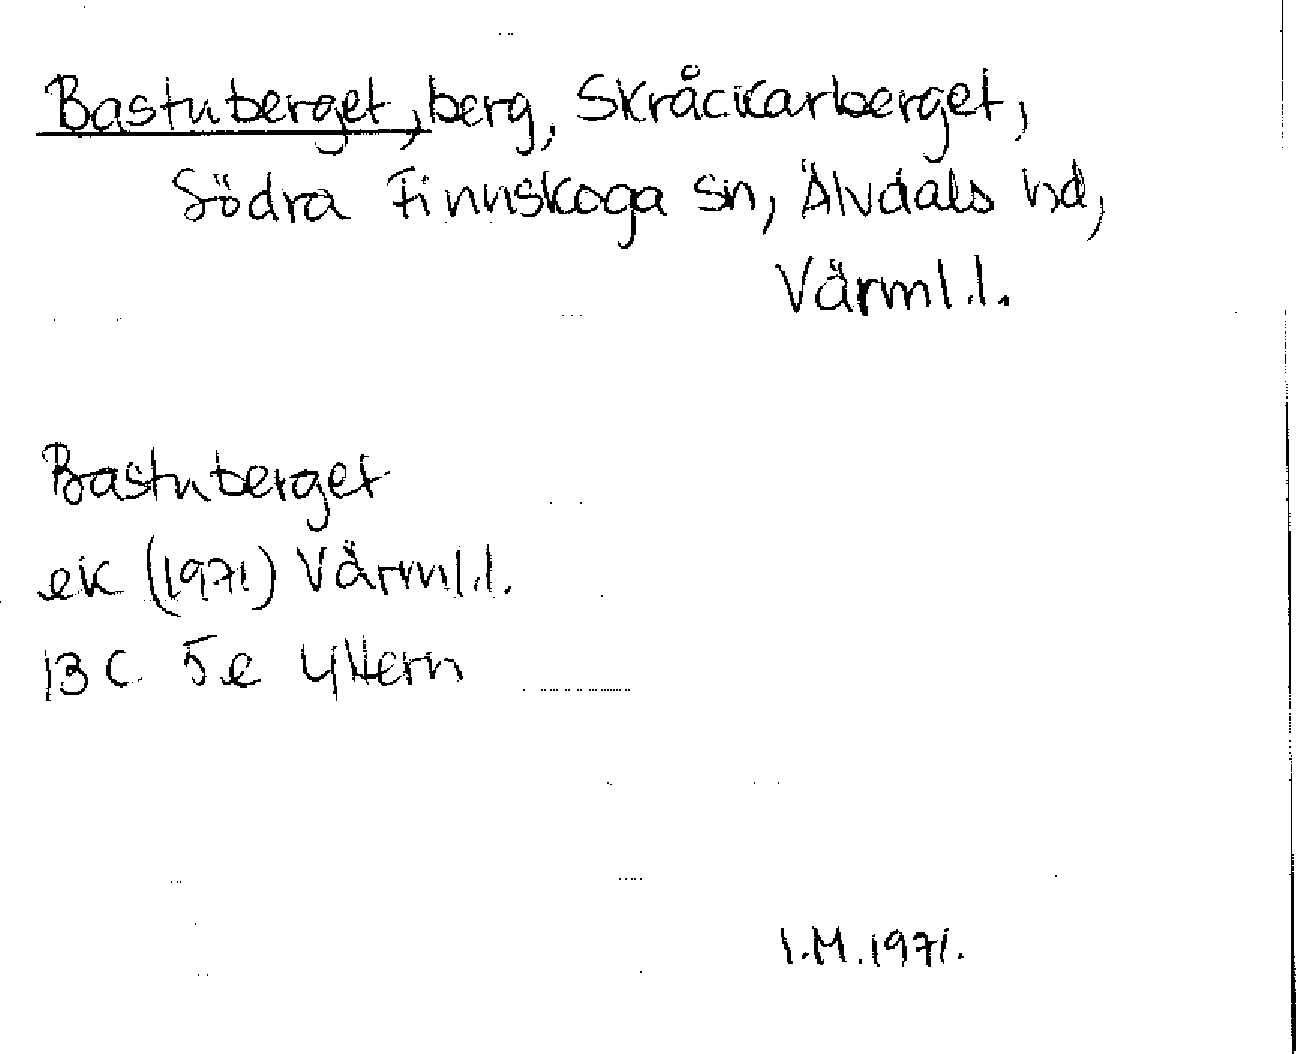 Bastuberget, berg, Skråckarberget,
Södra Finnskoga sn, Älvdals hd,
Värml.l.
Bastuberget
ek (1971) Värml.l.
13 C 5e Yttern
I.M. 1971.